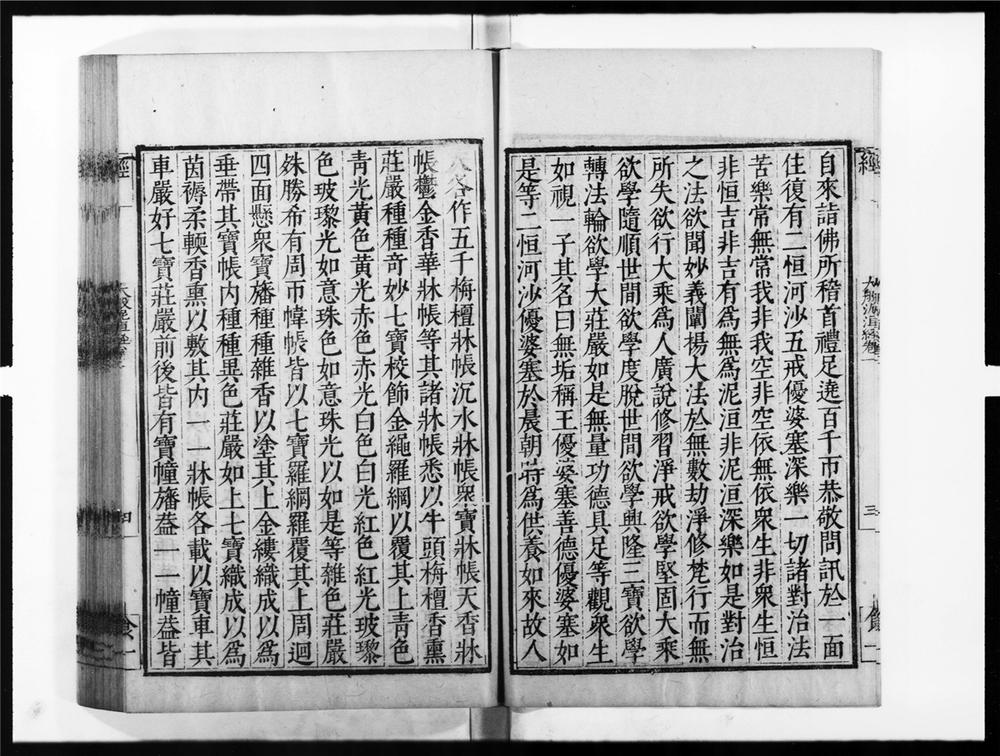 自來詣佛所稽首禮足遶百千帀恭敬問訊於一面
住復有二恒河沙五戒優婆塞深樂一切諸對治法
苦樂常無常我非我空非空依無依衆生非衆生恒
非恒吉非吉有爲無爲泥洹非泥洹深樂如是對治
之法欲聞妙義闡揚大法於無數劫淨修梵行而無
所失欲行大乘爲人廣說修習淨戒欲學堅固大乘
欲學隨順世間欲學度脫世間欲學興隆三寶欲學
轉法輪欲學大莊嚴如是無量功德具足等觀衆生
如視一子其名曰無垢稱王優婆塞善德優婆塞如
是等二恒河沙優婆塞於晨朝時爲供養如來故人
各作五千栴檀牀帳沉水牀帳衆寶牀帳天香牀
帳鬱金香華牀帳等其諸牀帳悉以牛頭栴檀香熏
莊嚴種種奇妙七寶校飾金繩羅網以覆其上青色
青光黃色黃光赤色赤光白色白光紅色紅光玻瓈
色玻瓈光如意珠色如意珠光以如是等雜色莊嚴
殊勝布有周帀幃帳皆以七寶羅網羅覆其上周迴
四面懸衆寶旛種種雜香以塗其上金縷織成以爲
垂帶其寶帳內種種異色莊嚴如上七寶織成以爲
茵褥柔輭香熏以敷其內一一牀帳各載以寶車其
車嚴好七寶莊嚴前後皆有寶幢旛葢一一幢葢皆
經
三
二
四